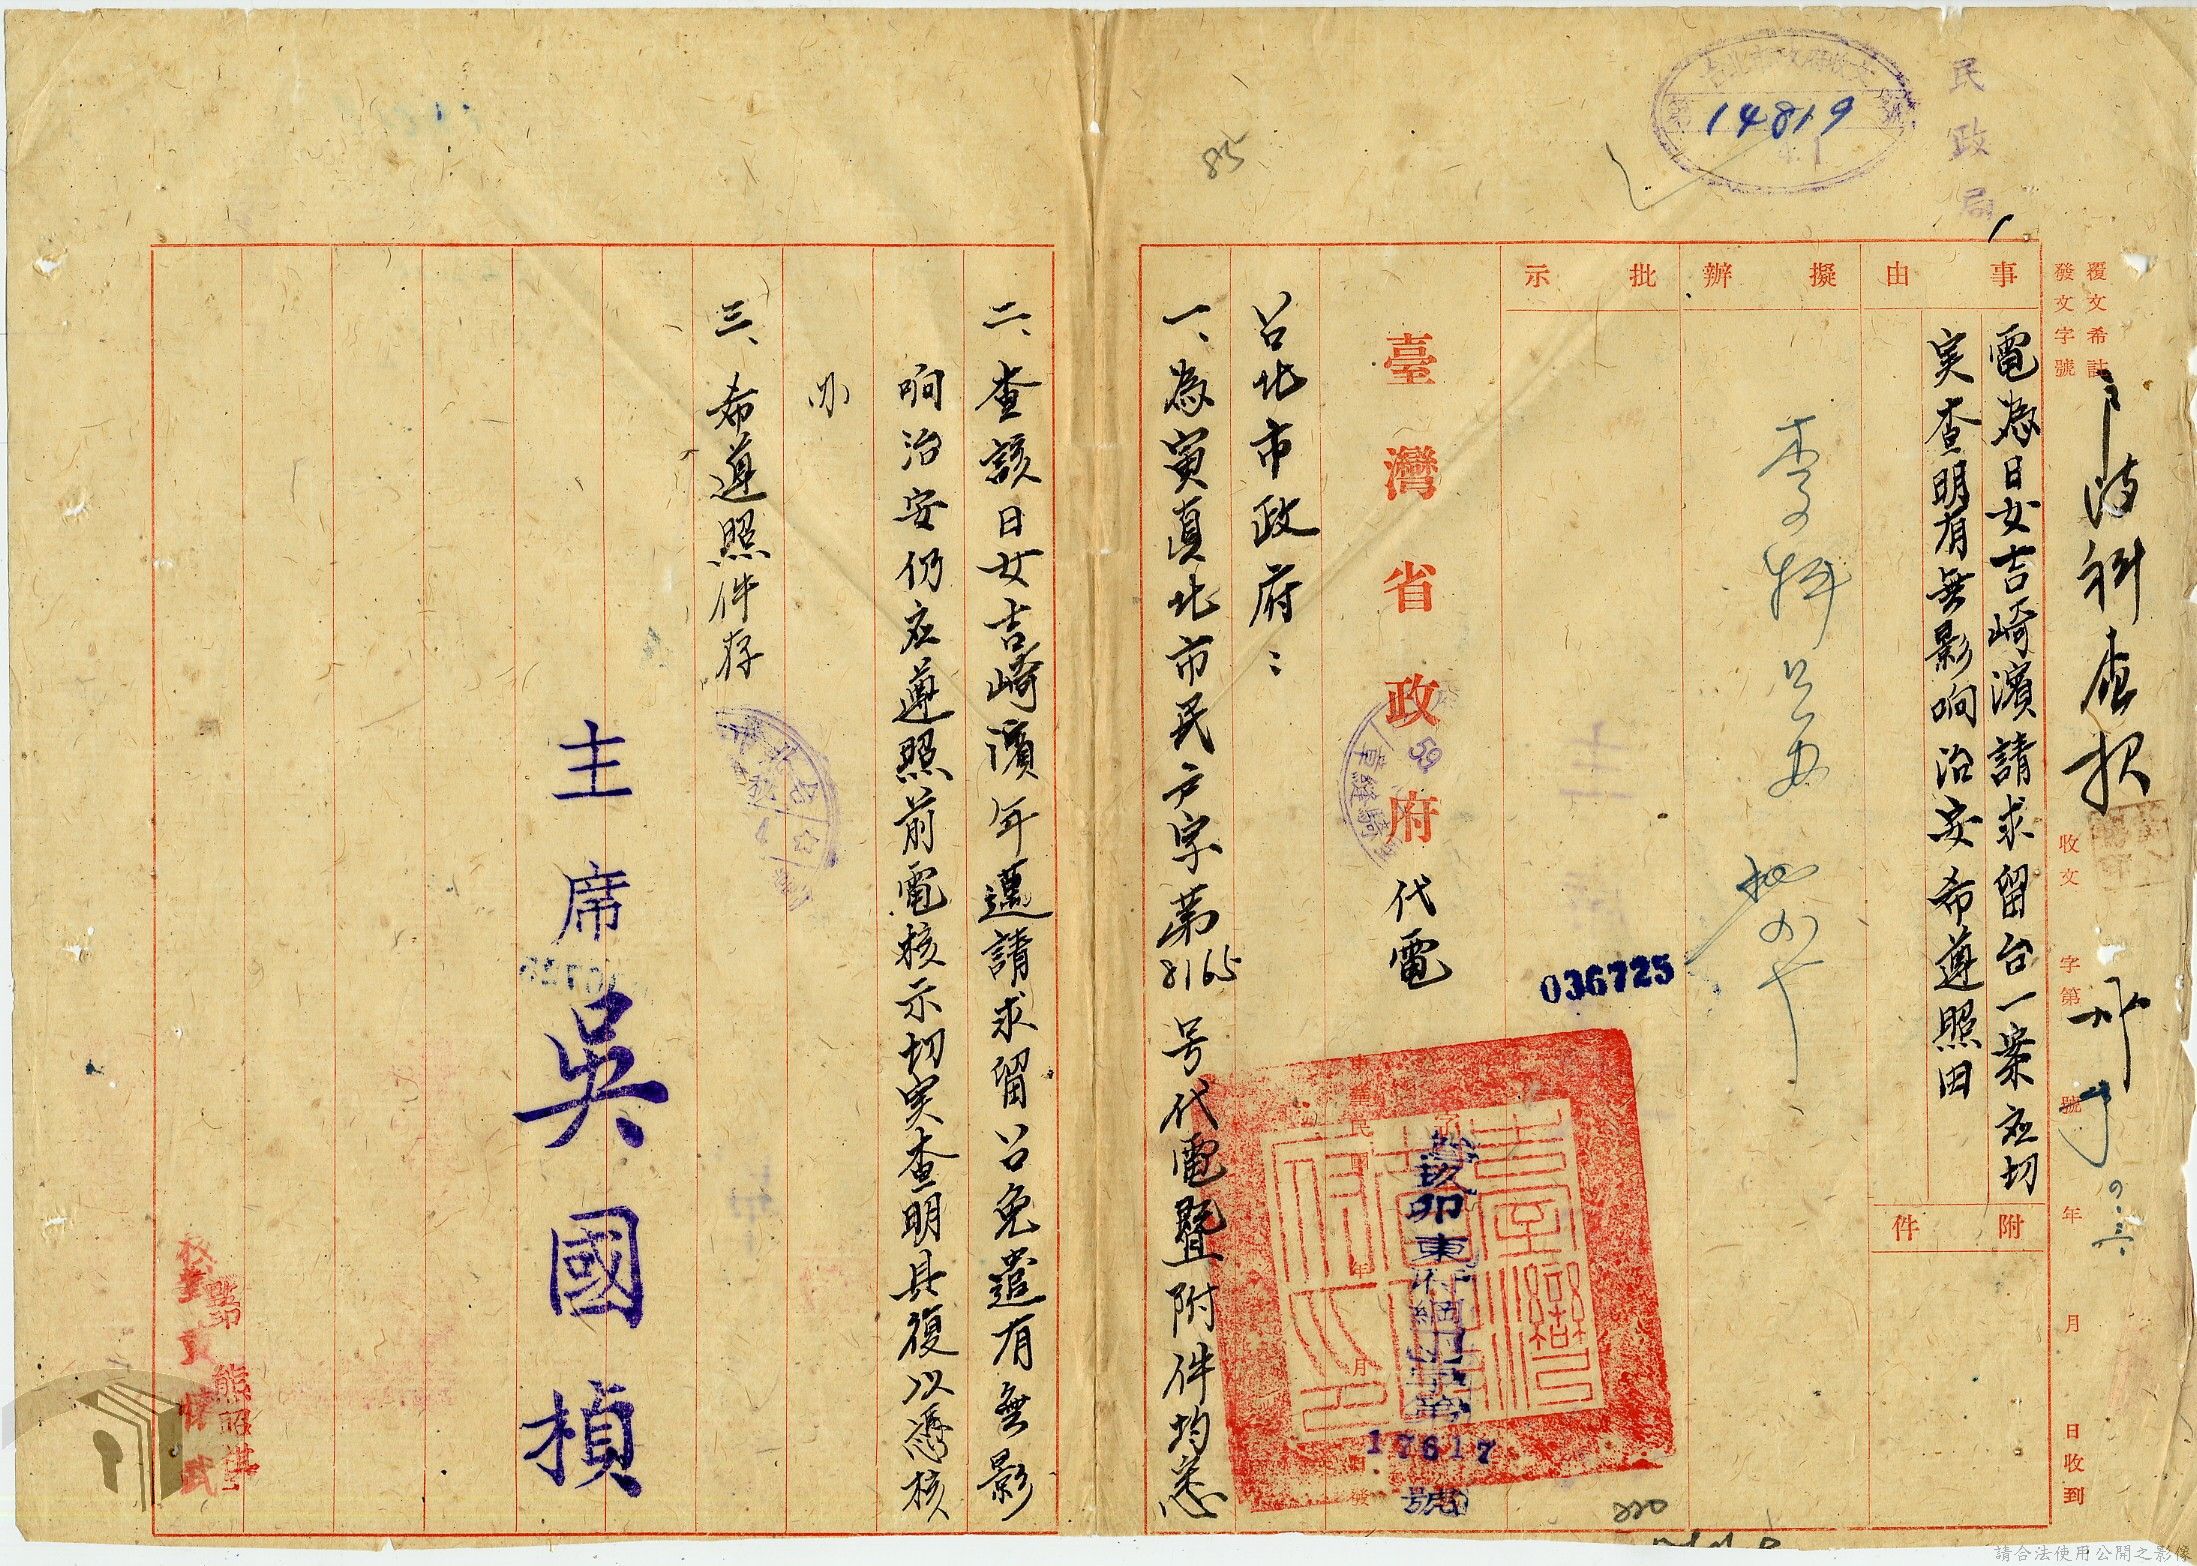 民政局
台北市政府收文
14819
4.1
85
覆文希註
發文字號
收文 字第 號 年 月 日收到
事由
電為日女吉崎濱請求留台一案应切
实查明有無影响治安希遵照由
附件
擬辦
批示
036725
臺灣省政府代電
17617
號
台北市政府：
一、為寅真北市民户字第8165号代電暨附件均悉
二、查該日女吉崎濱年邁請求留台免遣有無影
响治安仍应遵照前電核示切实查明具復以憑核
办
三、希遵照件存
主席吳國楨
熊昭祺
220
請合法使用公開之影像